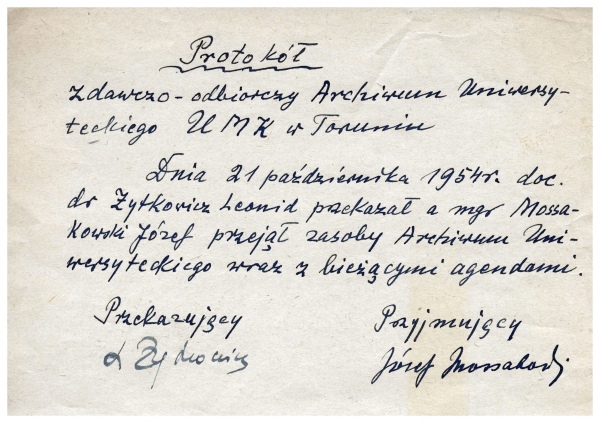 Protokół
zdawczo-odbiorczy Archiwum Uniwersy-
teckiego UMK w Toruniu
Dnia 21 października 1954r. doc.
dr Żytkowicz Leonid przekazał a mgr Mossa-
kowski Józef przejął zasoby Archiwum Uni-
wersyteckiego wraz z bieżącymi agendami.
Przekazujący Przyjmujący
L Żytkowicz Józef Mossakowski